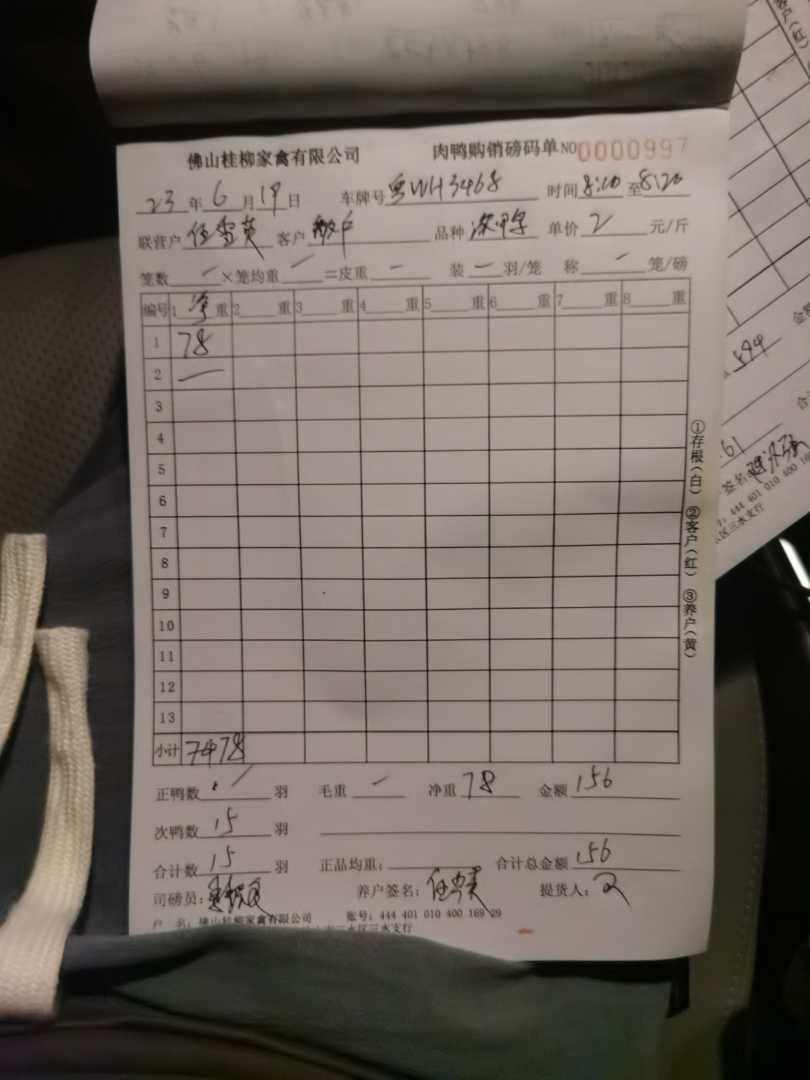 佛山桂柳家禽有限公司 肉鸭购销磅码单NO0000997
23年6月19日 车牌号粤WH3468 时间8:10至8:20
联营户 客户散户 品种 单价2元/斤
笼数一×笼均重一=皮重一 装一羽/笼 称一笼/磅
编号 1净重 2重 3重 4重 5重 6重 7重 8重
1 78
2 一
3
4
5
6
7
8
9
10
11
12
13
小计 78
正鸭数 羽 毛重一 净重78 金额156
次鸭数15羽
合计数15羽 正品均重: 合计总金额156
司磅员: 养户签名: 提货人:
户 名: 佛山桂柳家禽有限公司 账号: 444 401 010 400 169 29
区三水支行
①存根(白) ②客户(红) ③养户(黄)
(红)
594
61
签名
444 401 010 400 169
区三水支行